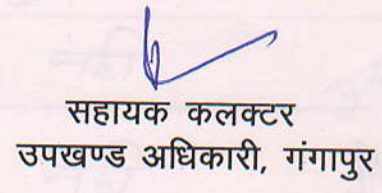 सहायक कलक्टर
उपखण्ड अधिकारी, गंगापुर